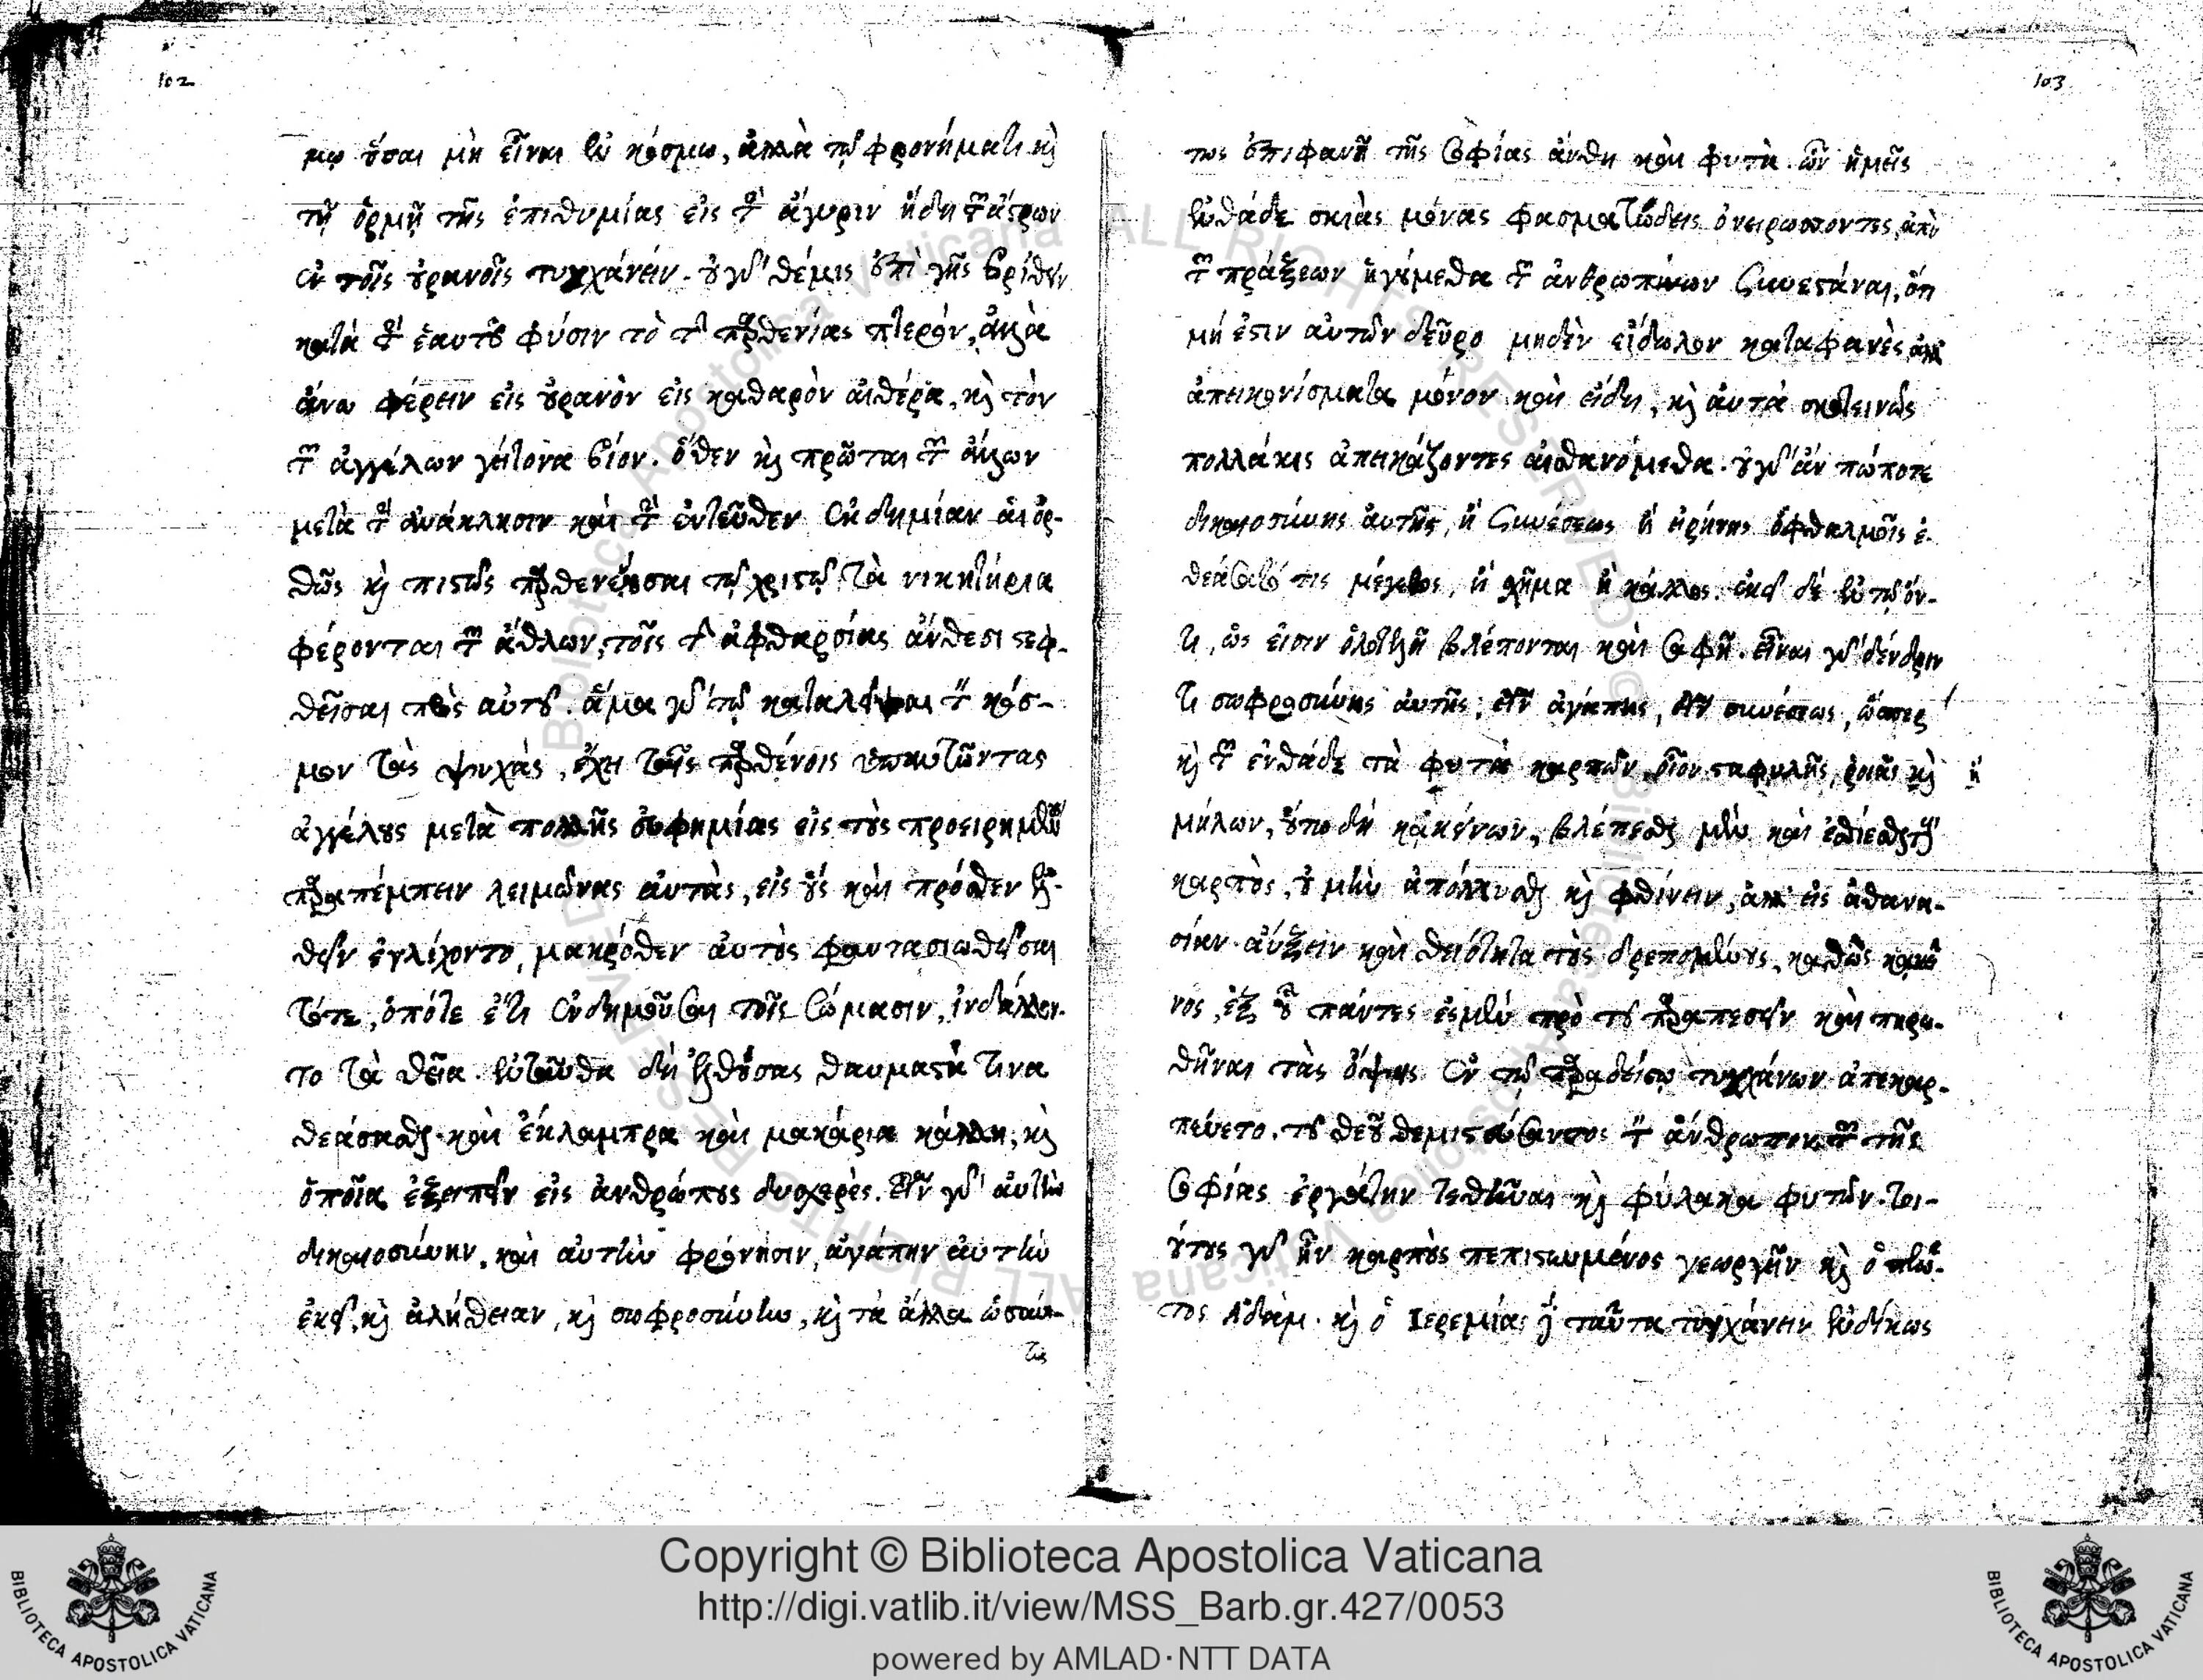 102
μῳ οὔσαι μὴ εἶναι ἐν κόσμῳ, ἀλλὰ τῷ φρονήματι καὶ
τῇ ὁρμῇ τῆς ἐπιθυμίας εἰς τὴν ἄγυριν ἤδη τῶν ἄστρων
ἐν τοῖς οὐρανοῖς τυγχάνειν. οὐ γὰρ θέμις ἐπὶ γῆς βρίθειν
κατὰ τὴν ἑαυτοῦ φύσιν τὸ τῆς παρθενίας πτερὸν, ἀλλὰ
ἄνω φέρειν εἰς οὐρανὸν εἰς καθαρὸν αἰθέρα, καὶ τὸν
τῶν ἀγγέλων γείτονα βίον. ὅθεν καὶ πρῶται τῶν ἄλλων
μετὰ τὴν ἀνάκλησιν καὶ τὴν ἐντεῦθεν ἐκδημίαν αἱ ὀρ-
θῶς καὶ πιστῶς παρθενεύσασαι τῷ χριστῷ τὰ νικητήρια
φέρονται τῶν ἄθλων, τοῖς τῆς ἀφθαρσίας ἄνθεσι στεφ-
θεῖσαι πρὸς αὐτοῦ. ἅμα γὰρ τῷ καταλεῖψαι τὸν κόσ-
μον τὰς ψυχὰς, ἔχει ταῖς παρθένοις ὑπαντῶντας
ἀγγέλους μετὰ πολλῆς εὐφημίας εἰς τοὺς προειρημένους
παραπέμπειν λειμῶνας αὐτὰς, εἰς οὓς καὶ πρόσθεν ἐλ-
θεῖν ἐγλίχοντο, μακρόθεν αὐτοὺς φαντασιωθεῖσαι
τότε, ὁπότε ἔτι ἐνδημοῦσαι τοῖς σώμασιν, ἰνδάλλον-
το τὰ θεῖα. ἐνταῦθα δὴ ἐλθούσας θαυμαστὰ τινα
θεάσασθαι καὶ ἔκλαμπρα καὶ μακάρια κάλλη, καὶ
ὁποῖα ἐξειπεῖν εἰς ἀνθρώπους δυσχερές. ἔστιν γὰρ αὐτὴν
δικαιοσύνην, καὶ αὐτὴν φρόνησιν, ἀγάπην αὐτὴν
ἐκεῖ, καὶ ἀλήθειαν, καὶ σωφροσύνην, καὶ τὰ ἄλλα ὡσαύ-
τως
103
τως ἐπιφανῆ τῆς σοφίας ἄνθη καὶ φυτὰ. ὧν ἡμεῖς
ἐνθάδε σκιὰς μόνας φασματώδεις ὀνειρώττοντες, ἀπὸ
τῶν πράξεων ἡγούμεθα τῶν ἀνθρωπίνων συνεστάναι, ὅτι
μή ἐστιν αὐτῶν δεῦρο μηδὲν εἴδωλον καταφανὲς ἀλλ'
ἀπεικονίσματα μόνον καὶ εἴδη, καὶ αὐτὰ σκοτεινῶς
πολλάκις ἀπεικάζοντες αἰσθανόμεθα. οὐ γὰρ ἂν πώποτε
δικαιοσύνης αὐτῆς, ἢ συνέσεως ἢ εἰρήνης ὀφθαλμοῖς ἐ-
θεάσατό τις μέγεθος, ἢ σχῆμα ἢ κάλλος. ἐκεῖ δὲ ἐν τῷ ὄν-
τι, ὥς εἰσιν ὁλοτελῆ βλέπονται καὶ σαφῆ. εἶναι γὰρ δένδρον
τι σωφροσύνης αὐτῆς, ἔστιν ἀγάπης, ἔστιν συνέσεως, ὥσπερ
καὶ τῶν ἐνθάδε τὰ φυτὰ καρπῶν, οἷον σταφυλῆς, ῥοιᾶς καὶ
ἢ
μήλων, οὕτω δὴ κἀκείνων, βλέπεσθαι μὲν καὶ ἐσθίεσθαι τοὺς
καρπὸς, οὐ μὴν ἀπόλλυσθαι καὶ φθίνειν, ἀλλ' εἰς ἀθανα-
σίαν αὔξειν καὶ θειότητα τοὺς δρεπομένους, καθὼς κἀκεῖ
νος, ἐξ οὗ πάντες ἐσμὲν πρὸ τοῦ παραπεσεῖν καὶ πηρω-
θῆναι τὰς ὄψεις ἐν τῷ παραδείσῳ τυγχάνων ἀπεκαρ-
πεύετο. τοῦ θεοῦ θεμιστεύσαντος τὸν ἄνθρωπον τῶν τῆς
σοφίας ἐργάτην τεθῆναι καὶ φύλακα φυτῶν. τοι-
ούτους γὰρ ἦν καρποὺς πεπιστωμένος γεωργεῖν καὶ ὁ πρῶ-
τος Ἀδάμ. καὶ ὁ Ἰερεμίας ὅτι ταῦτα τυγχάνειν ἐνδίκως
Copyright © Biblioteca Apostolica Vaticana
http://digi.vatlib.it/view/MSS_Barb.gr.427/0053
powered by AMLAD·NTT DATA
BIBLIOTECA APOSTOLICA VATICANA
BIBLIOTECA APOSTOLICA VATICANA